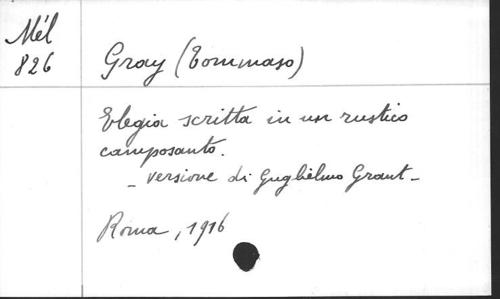 Mél
826
Gray (Tommaso)
Elegia scritta in un rustico
camposanto.
- versione di Guglielmo Grant -
Roma, 1916